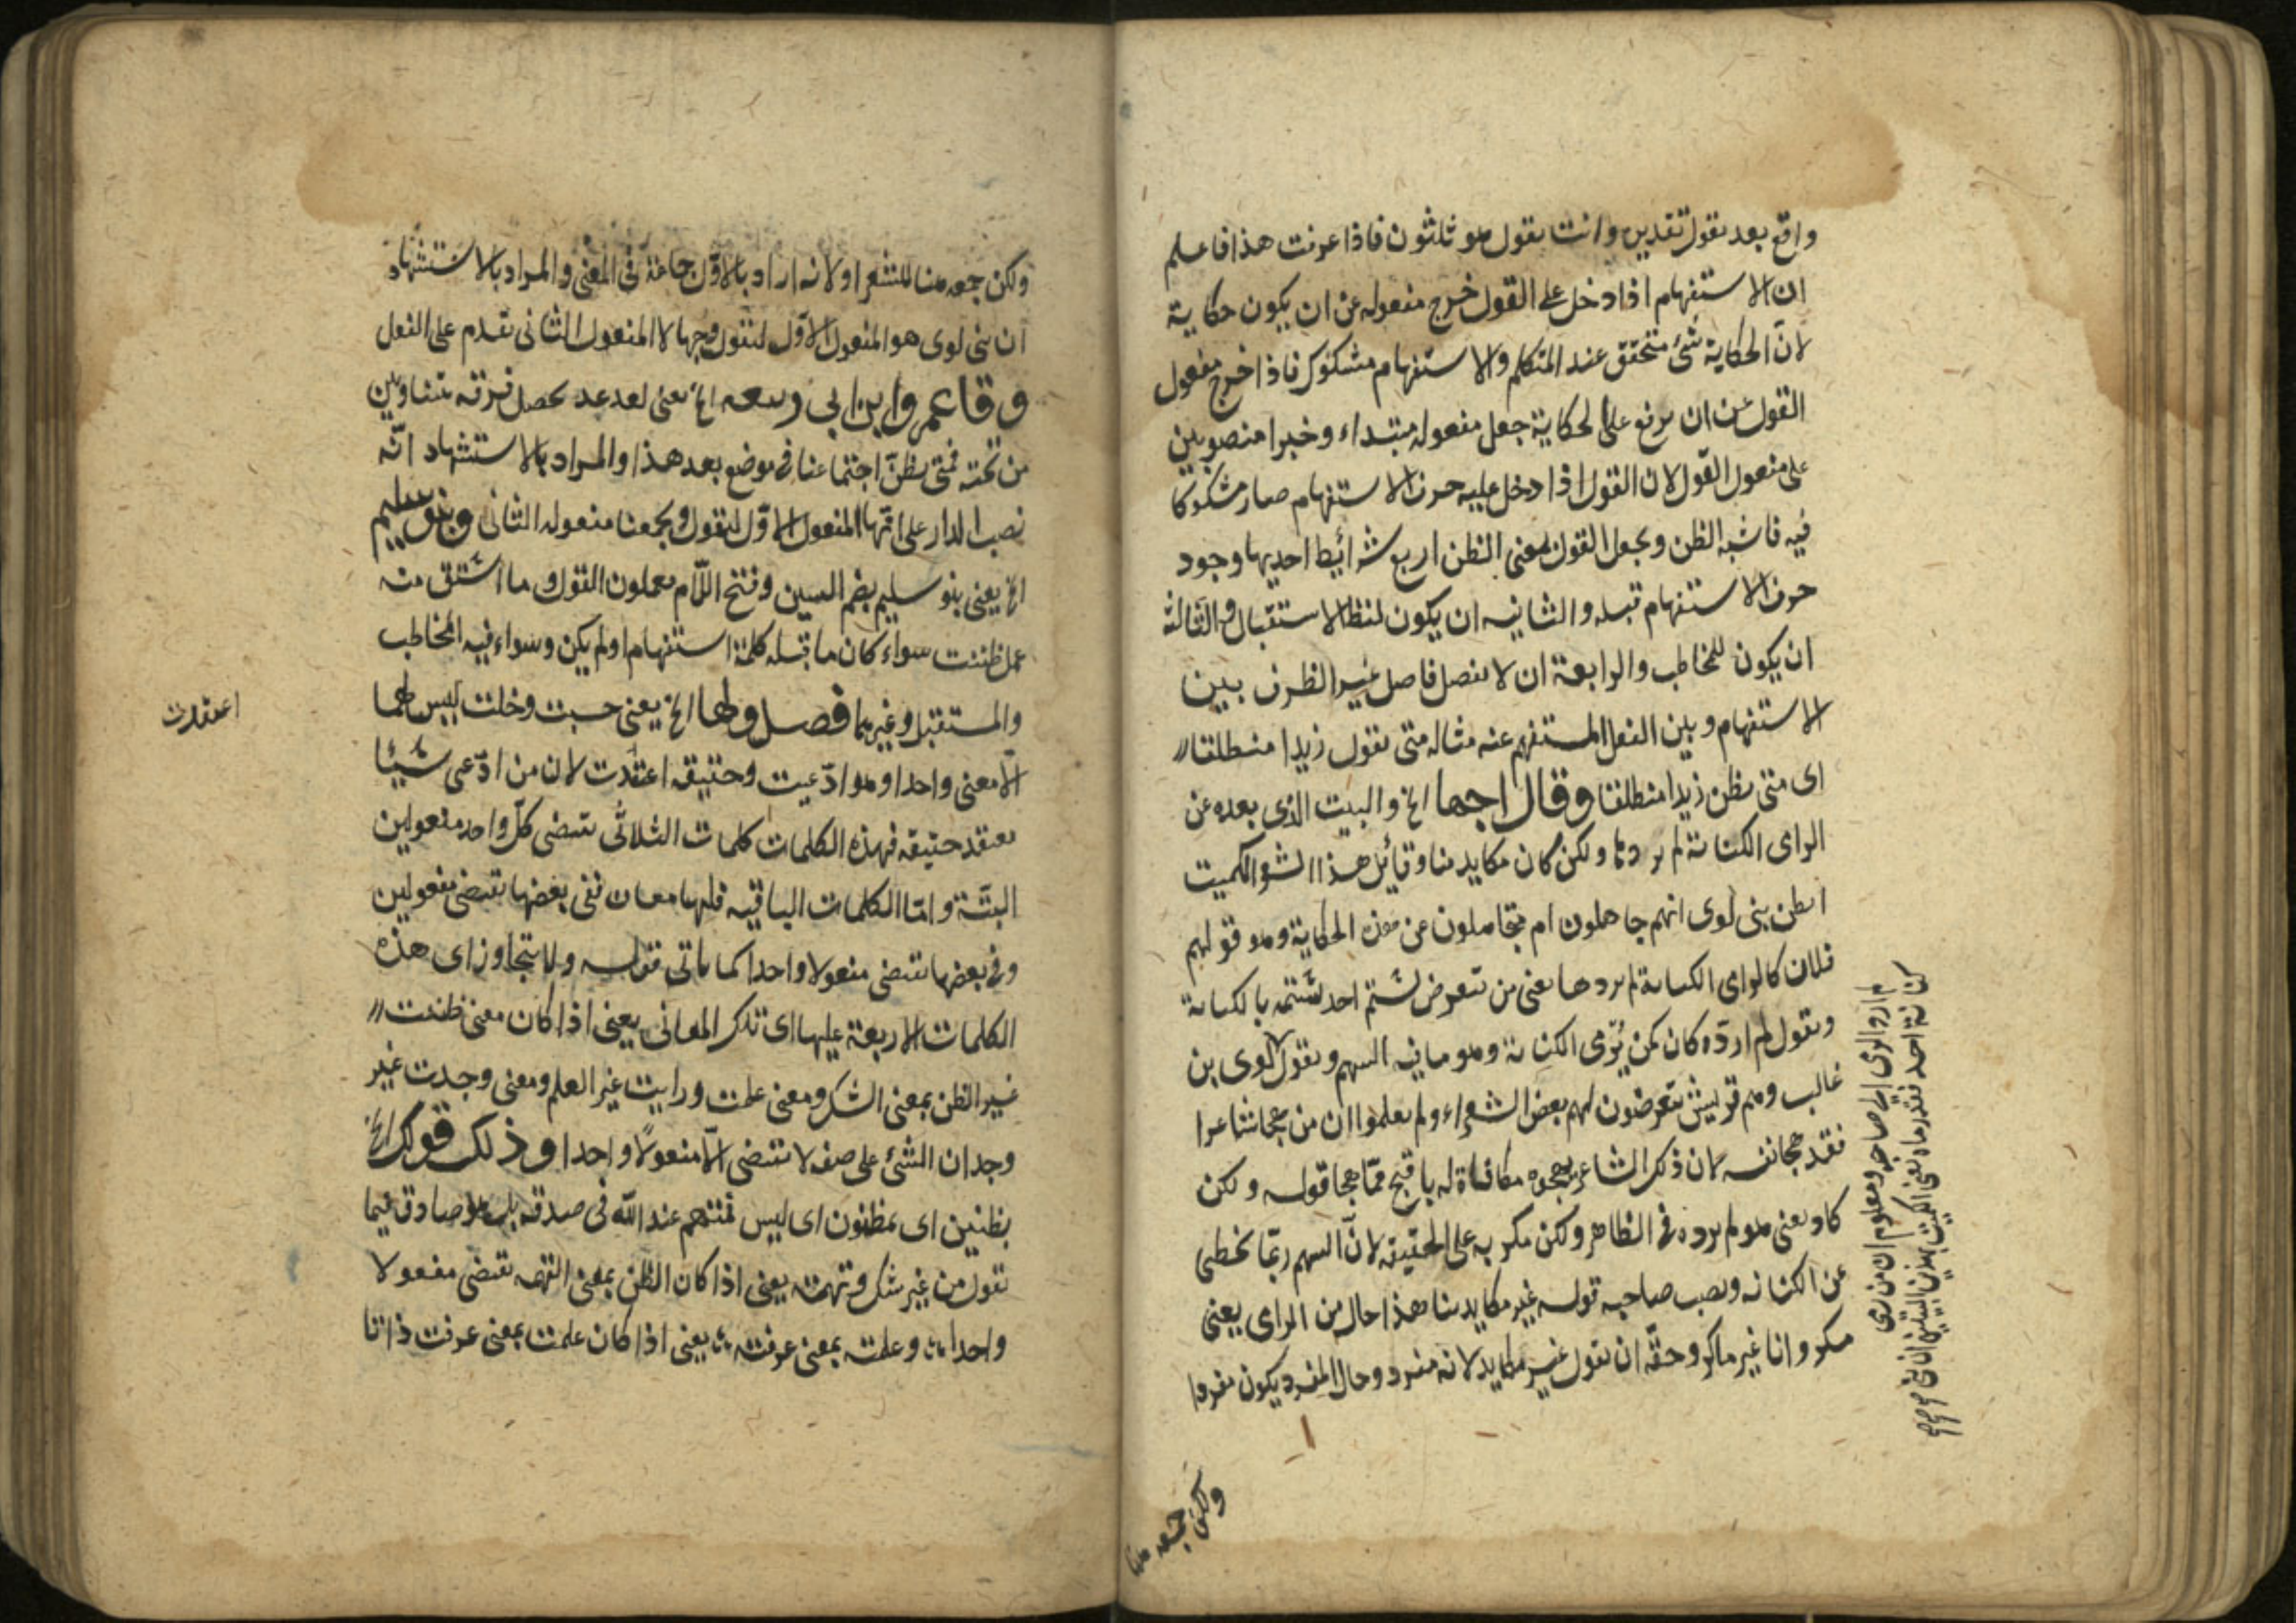 واقع بعد تقول تقديره وانت تقول هو ثلثون فاذا عرفت هذا فاعلم
ان الاستفهام اذا دخل على القول خرج مفعوله عن ان يكون حكاية
لانّ الحكاية شئ متحقق عند المتكلم والاستفهام مشكوك فاذا خرج مفعول
القول عن ان يرفع على الحكاية جعل مفعوله مبتداء وخبرا منصوبين
على مفعول القول لان القول اذا دخل عليه حرف الاستفهام صار مشكوكا
فيه فاشبه الظن ويجعل القول بمعنى الظن اربع شرائيط احديها وجود
حرف الاستفهام قبله والثانيه ان يكون لفظ الاستقبال والثالثة
ان يكون للمخاطب والرابعة ان لا يفصل فاصل غير الظرف بين
الاستفهام وبين الفعل المستفهم عنه مثاله متى تقول زيدا منطلقا
اى متى تظن زيدا منطلقا وقال اجها الخ والبيت الذى بعده عن
الراى الكنانة لم يردها ولكن كان مكايدينا وقائل هذا الشعر الكميت
اتظن بنى لوى انهم جاهلون ام متجاهلون عن هذه الحكاية وهو قولهم
فلان كالراى الكنانة لم يردها يعنى من تعرض لشتم احد شتمه بالكنانة
ويقول لم ارده كان كمن يرمى الكنانة وهو ما فيه السهم وتقول لوى بن
غالب وهم قريش تعرضون لهم بعض الشعراء ولم يعلموا ان من هجا شاعرا
فقد هجا نفسه لان ذلك الشاعر يهجوه مكافاة له باقبح ممّا هجا قوله ولكن
كاد يعنى هو لم يرده فى الظاهر ولكن مكر به على الحقيقه لانّ السهم ربّما يخطى
عن الكنانه ويصب صاحبه قوله غير مكايدينا هذا حال من الراى يعنى
مكر وانا غير ماكر وحقّه ان يقول غير مكايد لانه مفرد وحال المفرد يكون مفردا
لم ارد الرمى الى صاحبه ومعلوم ان من رمى
كنانة احد فقد رماه يعنى الكميت بهذين البيتين ان بنى
ولكن جمعه هنا
ولكن جمعه هنا للشعر او لانه اراد بالاوّل جماعة فى المعنى والمراد بالاستشهاد
ان بنى لوى هو المفعول الاوّل لتقول وجهالا المفعول الثانى تقدم على الفعل
وقا عمرو ابن ابى ربيعه الخ يعنى بعد غد يحصل فرقه
من تحته فمتى تظنّ اجتماعنا فى موضع بعد هذا والمراد بالاستشهاد انّه
نصب الدار على انّها المفعول الاوّل لتقول ويجمعنا مفعوله الثانى وبنو سليم
الخ يعنى بنو سليم بضم السين وفتح اللّام يعملون القول وما اشتق منه
عمل ظننت سواء كان ما قبله كلمة استفهام اولم يكن وسواء فيه المخاطب
والمستقبل وغيرهما فصل ولها الخ يعنى حسبت وخلت ليس لهما
الّا معنى واحدا وهو ادّعيت وحقيقه اعتقدت لان من ادّعى شيئا
يعتقد حقيقه فهذه الكلمات كلمات الثلاثى تقتضى كلّ واحد مفعولين
البتّة وامّا الكلمات الباقيه فلها معان ففى بعضها تقتضى مفعولين
وفى بعضها تقتضى مفعولا واحدا كما ياتى قوله ولا يتجاوز اى هذه
الكلمات الاربعة عليها اى تلك المعانى يعنى اذا كان معنى ظننت
غير الظن بمعنى الشك ومعنى علمت ورايت غير العلم ومعنى وجدت غير
وجدان الشئ على صفه لا تقتضى الّا مفعولا واحدا وذلك قولك الخ
بظنين اى بمظنون اى ليس بمتهم عند الله فى صدقه بل هو صادق فيما
تقول من غير شك وتهمة يعنى اذا كان الظن بمعنى التهمه تقتضى مفعولا
واحدا وعلمته بمعنى عرفته يعنى اذا كان علمت بمعنى عرفت ذاتا
اعتقدت